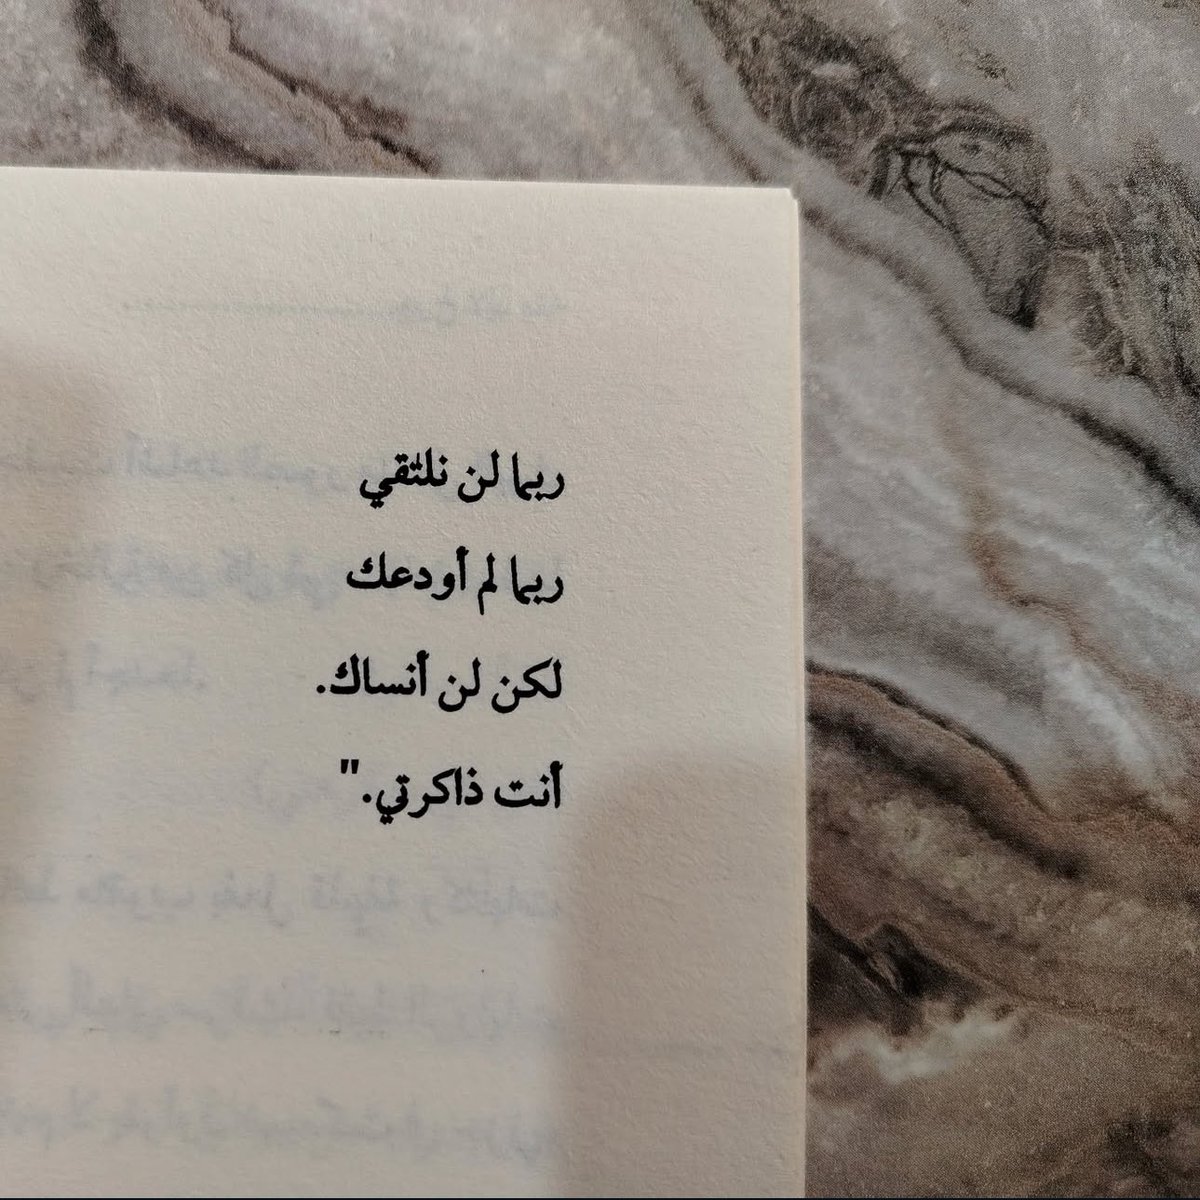 ربما لن نلتقي
ربما لم أودعك
لكن لن أنساك.
أنت ذاكرتي."